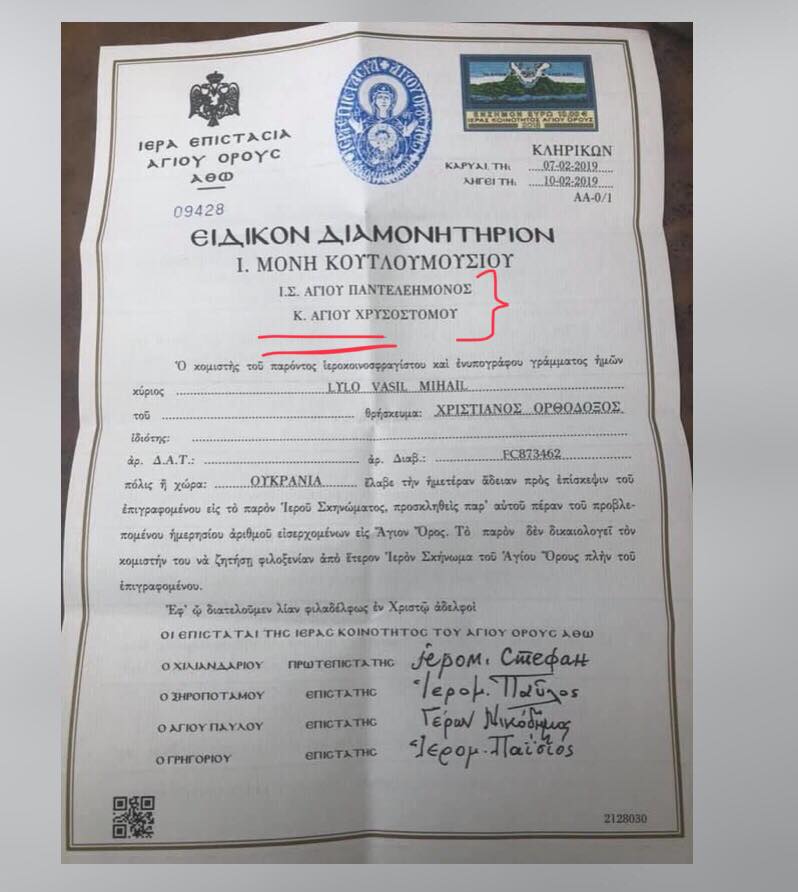 ΙΕΡΑ ΕΠΙΣΤΑΣΙΑ
ΑΓΙΟΥ ΟΡΟΥΣ
ΑΘΩ
09428
ΕΝΣΗΜΟΝ ΕΥΡΩ 10,00 €
ΙΕΡΑΣ ΚΟΙΝΟΤΗΤΟΣ ΑΓΙΟΥ ΟΡΟΥΣ
2018
ΚΛΗΡΙΚΩΝ
ΚΑΡΥΑΙ, ΤΗ: 07-02-2019
ΛΗΓΕΙ ΤΗ: 10-02-2019
ΑΑ-0/1
ΕΙΔΙΚΟΝ ΔΙΑΜΟΝΗΤΗΡΙΟΝ
Ι. ΜΟΝΗ ΚΟΥΤΛΟΥΜΟΥΣΙΟΥ
Ι.Σ. ΑΓΙΟΥ ΠΑΝΤΕΛΕΗΜΟΝΟΣ
Κ. ΑΓΙΟΥ ΧΡΥΣΟΣΤΟΜΟΥ
Ὁ κομιστὴς τοῦ παρόντος ἱεροκοινοσφραγίστου καὶ ἐνυπογράφου γράμματος ἡμῶν
κύριος LYLO VASIL MIHAIL
τοῦ θρήσκευμα: ΧΡΙΣΤΙΑΝΟΣ ΟΡΘΟΔΟΞΟΣ
ἰδιότης:
ἀρ. Δ.Α.Τ.: ἀρ. Διαβ.: FC873462
πόλις ἢ χώρα: ΟΥΚΡΑΝΙΑ ἔλαβε τὴν ἡμετέραν ἄδειαν πρὸς ἐπίσκεψιν τοῦ
ἐπιγραφομένου εἰς τὸ παρὸν Ἱεροῦ Σκηνώματος, προσκληθεὶς παρ' αὐτοῦ πέραν τοῦ προβλε-
πομένου ἡμερησίου ἀριθμοῦ εἰσερχομένων εἰς Ἅγιον Ὄρος. Τὸ παρὸν δὲν δικαιολογεῖ τὸν
κομιστήν του νὰ ζητήσῃ φιλοξενίαν ἀπὸ ἕτερον Ἱερὸν Σκήνωμα τοῦ Ἁγίου Ὄρους πλὴν τοῦ
ἐπιγραφομένου.
Ἐφ' ᾧ διατελοῦμεν λίαν φιλαδέλφως ἐν Χριστῷ ἀδελφοὶ
ΟΙ ΕΠΙΣΤΑΤΑΙ ΤΗΣ ΙΕΡΑΣ ΚΟΙΝΟΤΗΤΟΣ ΤΟΥ ΑΓΙΟΥ ΟΡΟΥΣ ΑΘΩ
Ο ΧΙΛΙΑΝΔΑΡΙΟΥ ΠΡΩΤΕΠΙΣΤΑΤΗΣ Ἱερομ. Стефан
Ο ΞΗΡΟΠΟΤΑΜΟΥ ΕΠΙΣΤΑΤΗΣ Ἱερομ. Παῦλος
Ο ΑΓΙΟΥ ΠΑΥΛΟΥ ΕΠΙΣΤΑΤΗΣ Γέρων Νικόδημος
Ο ΓΡΗΓΟΡΙΟΥ ΕΠΙΣΤΑΤΗΣ Ἱερομ. Παΐσιος
2128030